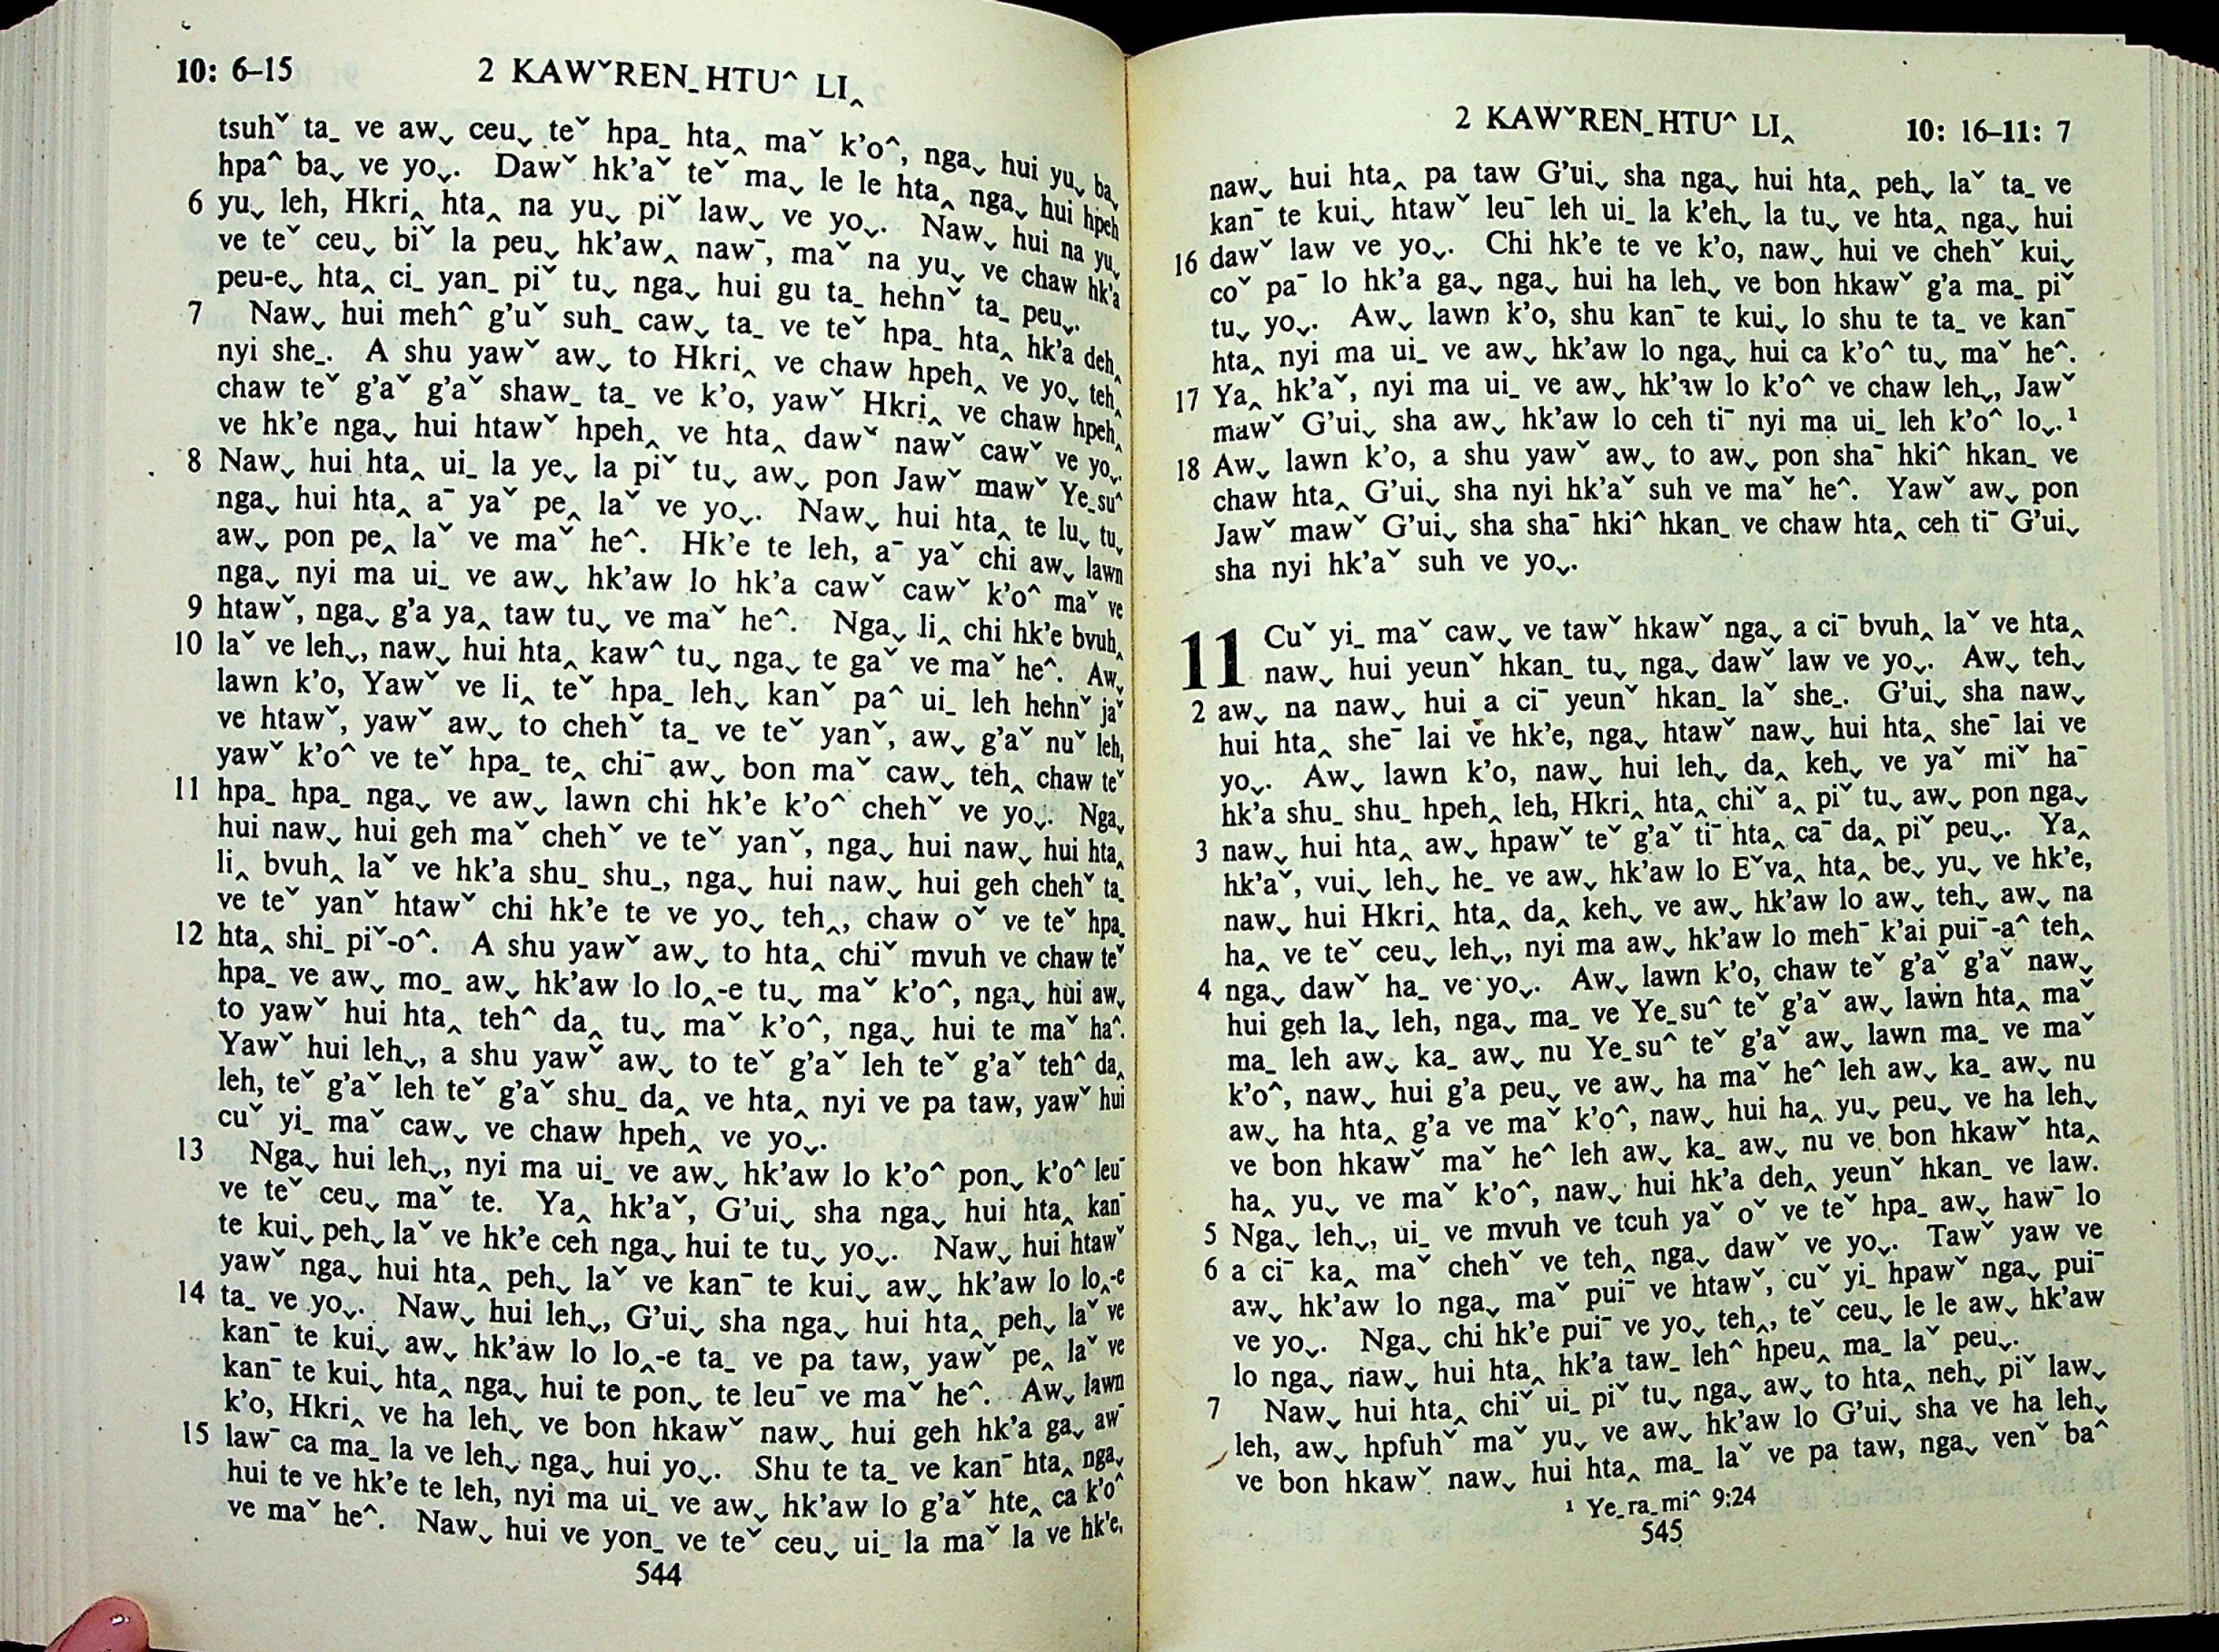 10: 6–15
2 KAWˇREN_HTU^ LI‸
tsuhˇ ta_ ve aw˯ ceu˯ teˇ hpa_ hta‸ maˇ k'o^, nga˯ hui yu˯ ba˯
hpa^ ba˯ ve yo˯. Dawˇ hk'aˇ teˇ ma˯ le le hta‸ nga˯ hui hpeh
6 yu˯ leh, Hkri‸ hta‸ na yu˯ piˇ law˯ ve yo˯. Naw˯ hui na yu˯
ve teˇ ceu˯ biˇ la peu˯ hk'aw‸ nawˉ, maˇ na yu˯ ve chaw hk'a
peu-e˯ hta‸ ci_ yan_ piˇ tu˯ nga˯ hui gu ta_ hehnˇ ta_ peu˯.
7 Naw˯ hui meh^ g'uˇ suh_ caw˯ ta_ ve teˇ hpa_ hta‸ hk'a deh‸
nyi she_. A shu yawˇ aw˯ to Hkri‸ ve chaw hpeh‸ ve yo˯ teh‸
chaw teˇ g'aˇ g'aˇ shaw_ ta_ ve k'o, yawˇ Hkri‸ ve chaw hpeh‸
ve hk'e nga˯ hui htawˇ hpeh‸ ve hta‸ dawˇ nawˇ cawˇ ve yo˯.
8 Naw˯ hui hta‸ ui_ la ye˯ la piˇ tu˯ aw˯ pon Jawˇ mawˇ Ye_su^
nga˯ hui hta‸ aˉ yaˇ pe‸ laˇ ve yo˯. Naw˯ hui hta‸ te lu˯ tu˯
aw˯ pon pe‸ laˇ ve maˇ he^. Hk'e te leh, aˉ yaˇ chi aw˯ lawn
nga˯ nyi ma ui_ ve aw˯ hk'aw lo hk'a cawˇ cawˇ k'o^ maˇ ve
9 htawˇ, nga˯ g'a ya‸ taw tu˯ ve maˇ he^. Nga˯ li‸ chi hk'e bvuh‸
10 laˇ ve leh˯, naw˯ hui hta‸ kaw^ tu˯ nga˯ te gaˇ ve maˇ he^. Aw˯
lawn k'o, Yawˇ ve li‸ teˇ hpa_ leh˯ kanˇ pa^ ui_ leh hehnˇ jaˇ
ve htawˇ, yawˇ aw˯ to chehˇ ta_ ve teˇ yanˇ, aw˯ g'aˇ nuˇ leh,
yawˇ k'o^ ve teˇ hpa_ te‸ chiˉ aw˯ bon maˇ caw˯ teh‸ chaw teˇ
11 hpa_ hpa_ nga˯ ve aw˯ lawn chi hk'e k'o^ chehˇ ve yo˯. Nga˯
hui naw˯ hui geh maˇ chehˇ ve teˇ yanˇ, nga˯ hui naw˯ hui hta‸
li‸ bvuh‸ laˇ ve hk'a shu_ shu_, nga˯ hui naw˯ hui geh chehˇ ta_
ve teˇ yanˇ htawˇ chi hk'e te ve yo˯ teh‸, chaw oˇ ve teˇ hpa_
12 hta‸ shi_ piˇ-o^. A shu yawˇ aw˯ to hta‸ chiˇ mvuh ve chaw teˇ
hpa_ ve aw˯ mo_ aw˯ hk'aw lo lo‸-e tu˯ maˇ k'o^, nga˯ hui aw˯
to yawˇ hui hta‸ teh^ da‸ tu˯ maˇ k'o^, nga˯ hui te maˇ ha^.
Yawˇ hui leh˯, a shu yawˇ aw˯ to teˇ g'aˇ leh teˇ g'aˇ teh^ da‸
leh, teˇ g'aˇ leh teˇ g'aˇ shu_ da‸ ve hta‸ nyi ve pa taw, yawˇ hui
cuˇ yi_ maˇ caw˯ ve chaw hpeh‸ ve yo˯.
13 Nga˯ hui leh˯, nyi ma ui_ ve aw˯ hk'aw lo k'o^ pon˯ k'o^ leuˉ
ve teˇ ceu˯ maˇ te. Ya‸ hk'aˇ, G'ui˯ sha nga˯ hui hta‸ kanˉ
te kui˯ peh˯ laˇ ve hk'e ceh nga˯ hui te tu˯ yo˯. Naw˯ hui htawˇ
yawˇ nga˯ hui hta‸ peh˯ laˇ ve kanˉ te kui˯ aw˯ hk'aw lo lo‸-e
14 ta_ ve yo˯. Naw˯ hui leh˯, G'ui˯ sha nga˯ hui hta‸ peh˯ laˇ ve
kanˉ te kui˯ aw˯ hk'aw lo lo‸-e ta_ ve pa taw, yawˇ pe‸ laˇ ve
kanˉ te kui˯ hta‸ nga˯ hui te pon˯ te leuˉ ve maˇ he^. Aw˯ lawn
k'o, Hkri‸ ve ha leh˯ ve bon hkawˇ naw˯ hui geh hk'a ga˯ awˉ
15 lawˉ ca ma_ la ve leh˯ nga˯ hui yo˯. Shu te ta_ ve kanˉ hta‸ nga˯
hui te ve hk'e te leh, nyi ma ui_ ve aw˯ hk'aw lo g'aˇ hte‸ ca k'o^
ve maˇ he^. Naw˯ hui ve yon_ ve teˇ ceu˯ ui_ la maˇ la ve hk'e,
544
2 KAWˇREN_HTU^ LI‸
10: 16–11: 7
naw˯ hui hta‸ pa taw G'ui˯ sha nga˯ hui hta‸ peh˯ laˇ ta_ ve
kanˉ te kui˯ htawˇ leuˉ leh ui_ la k'eh˯ la tu˯ ve hta‸ nga˯ hui
16 dawˇ law ve yo˯. Chi hk'e te ve k'o, naw˯ hui ve chehˇ kui˯
coˇ paˉ lo hk'a ga˯ nga˯ hui ha leh˯ ve bon hkawˇ g'a ma_ piˇ
tu˯ yo˯. Aw˯ lawn k'o, shu kanˉ te kui˯ lo shu te ta_ ve kanˉ
hta‸ nyi ma ui_ ve aw˯ hk'aw lo nga˯ hui ca k'o^ tu˯ maˇ he^.
17 Ya‸ hk'aˇ, nyi ma ui_ ve aw˯ hk'aw lo k'o^ ve chaw leh˯, Jawˇ
mawˇ G'ui˯ sha aw˯ hk'aw lo ceh tiˉ nyi ma ui_ leh k'o^ lo˯.¹
18 Aw˯ lawn k'o, a shu yawˇ aw˯ to aw˯ pon shaˉ hki^ hkan_ ve
chaw hta‸ G'ui˯ sha nyi hk'aˇ suh ve maˇ he^. Yawˇ aw˯ pon
Jawˇ mawˇ G'ui˯ sha shaˉ hki^ hkan_ ve chaw hta‸ ceh tiˉ G'ui˯
sha nyi hk'aˇ suh ve yo˯.
11 Cuˇ yi_ maˇ caw˯ ve tawˇ hkawˇ nga˯ a ciˉ bvuh‸ laˇ ve hta‸
naw˯ hui yeunˇ hkan_ tu˯ nga˯ dawˇ law ve yo˯. Aw˯ teh˯
2 aw˯ na naw˯ hui a ciˉ yeunˇ hkan_ laˇ she_. G'ui˯ sha naw˯
hui hta‸ sheˉ lai ve hk'e, nga˯ htawˇ naw˯ hui hta‸ sheˉ lai ve
yo˯. Aw˯ lawn k'o, naw˯ hui leh˯ da‸ keh˯ ve yaˇ miˇ haˉ
hk'a shu_ shu_ hpeh‸ leh, Hkri‸ hta‸ chiˇ a‸ piˇ tu˯ aw˯ pon nga˯
3 naw˯ hui hta‸ aw˯ hpawˇ teˇ g'aˇ tiˉ hta‸ caˉ da‸ piˇ peu˯. Ya‸
hk'aˇ, vui˯ leh˯ he_ ve aw˯ hk'aw lo Eˇva‸ hta‸ be˯ yu˯ ve hk'e,
naw˯ hui Hkri‸ hta‸ da‸ keh˯ ve aw˯ hk'aw lo aw˯ teh˯ aw˯ na
ha‸ ve teˇ ceu˯ leh˯, nyi ma aw˯ hk'aw lo mehˉ k'ai puiˉ-a^ teh‸
4 nga˯ dawˇ ha_ ve yo˯. Aw˯ lawn k'o, chaw teˇ g'aˇ g'aˇ naw˯
hui geh la˯ leh, nga˯ ma_ ve Ye_su^ teˇ g'aˇ aw˯ lawn hta‸ maˇ
ma_ leh aw˯ ka_ aw˯ nu Ye_su^ teˇ g'aˇ aw˯ lawn ma_ ve maˇ
k'o^, naw˯ hui g'a peu˯ ve aw˯ ha maˇ he^ leh aw˯ ka_ aw˯ nu
aw˯ ha hta‸ g'a ve maˇ k'o^, naw˯ hui ha‸ yu˯ peu˯ ve ha leh˯
ve bon hkawˇ maˇ he^ leh aw˯ ka_ aw˯ nu ve bon hkawˇ hta‸
ha‸ yu˯ ve maˇ k'o^, naw˯ hui hk'a deh‸ yeunˇ hkan_ ve law.
5 Nga˯ leh˯, ui_ ve mvuh ve tcuh yaˇ oˇ ve teˇ hpa_ aw˯ hawˉ lo
6 a ciˉ ka‸ maˇ chehˇ ve teh‸ nga˯ dawˇ ve yo˯. Tawˇ yaw ve
aw˯ hk'aw lo nga˯ maˇ puiˉ ve htawˇ, cuˇ yi_ hpawˇ nga˯ puiˉ
ve yo˯. Nga˯ chi hk'e puiˉ ve yo˯ teh‸, teˇ ceu˯ le le aw˯ hk'aw
lo nga˯ naw˯ hui hta‸ hk'a taw_ leh^ hpeu‸ ma_ laˇ peu˯.
7 Naw˯ hui hta‸ chiˇ ui_ piˇ tu˯ nga˯ aw˯ to hta‸ neh˯ piˇ law˯
leh, aw˯ hpfuhˇ maˇ yu˯ ve aw˯ hk'aw lo G'ui˯ sha ve ha leh˯
ve bon hkawˇ naw˯ hui hta‸ ma_ laˇ ve pa taw, nga˯ venˇ ba^
¹ Ye_ra_mi^ 9:24
545